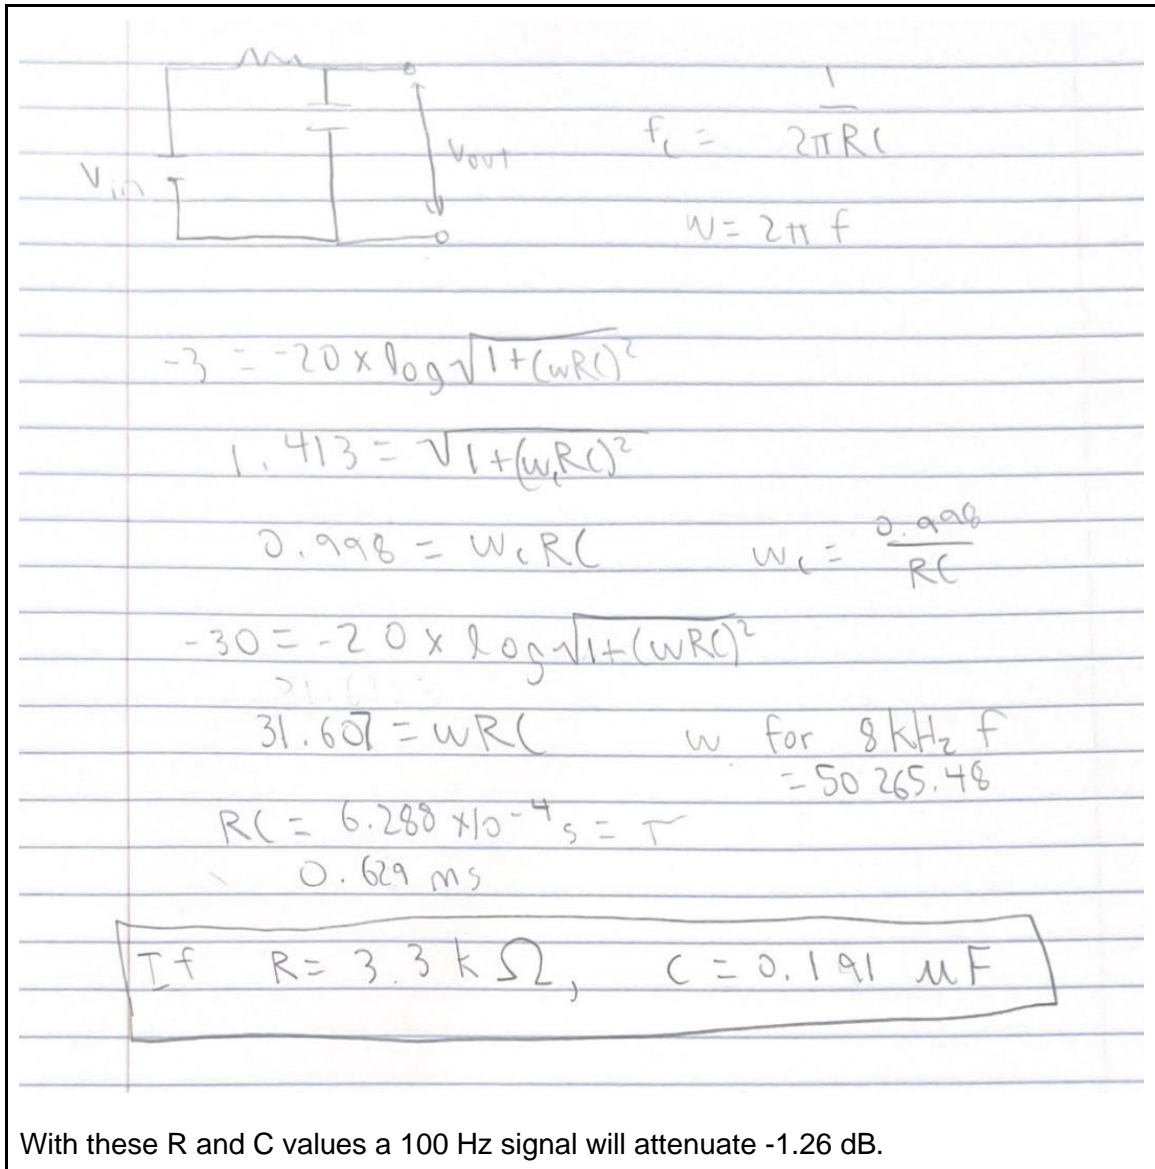 Vin
Vout
fc = 1/2πRC
w = 2π f
-3 = -20 x log√1+(wRC)²
1.413 = √1+(wcRC)²
0.998 = wcRC
wc = 0.998/RC
-30 = -20 x log√1+(wRC)²
31.607 = wRC
w for 8 kHz f
= 50 265.48
RC = 6.288 x10⁻⁴ s = τ
0.629 ms
If R = 3.3 kΩ, C = 0.191 μF
With these R and C values a 100 Hz signal will attenuate -1.26 dB.